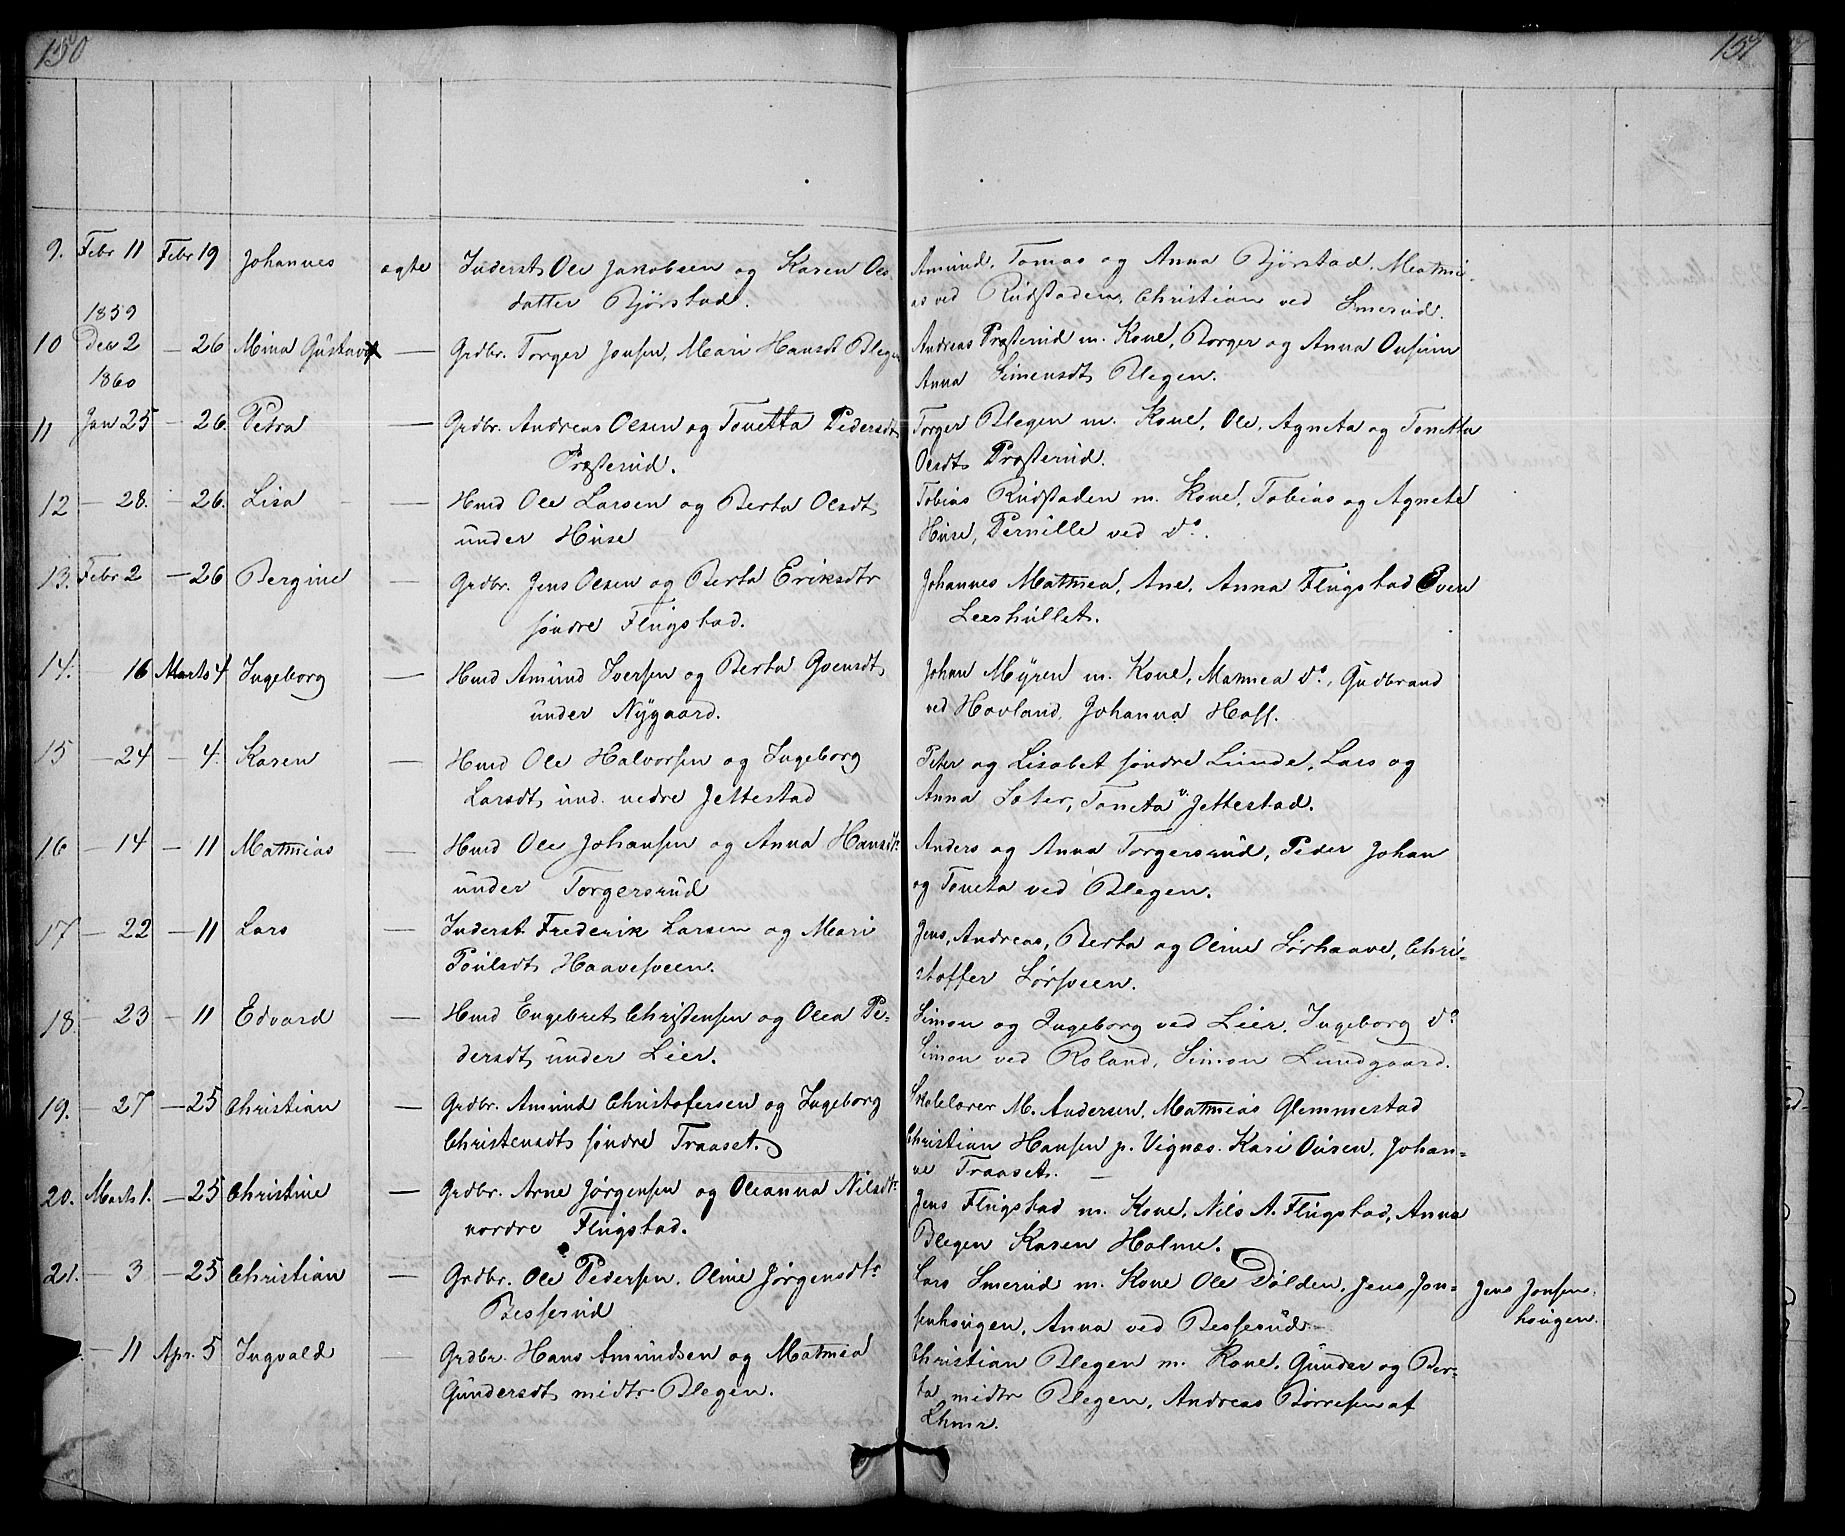 150
157
9. Febr 11 Febr 19 Johannes ægte Inderst Ole Jakobsen og Karen Ols
datter Bjørstad.
Amund, Tomas og Anna Bjørstad, Mathi-
as ved Rudstaden, Christian ved Smerud.
1859
10 Dec 2 — 26 Mina Gustava — Grdbr. Torger Jonsen, Mari Hansdt Blegen
Andreas Præsterud m. Kone, Borger og Anna Onsum
Anna Simensdt Blegen.
1860
11 Jan 25 — 26. Petra — Grdbr. Andreas Olsen og Tonetta Pedersdt
Præsterud.
Torger Blegen m. Kone, Ole, Agneta og Tonetta
Olsdt Præsterud.
12 — 28. — 26. Lisa — Hmd Ole Larsen og Berta Olsdt
under Huse
Tobias Rudstaden m. Kone, Tobias og Agnete
Huse, Pernille ved do.
13. Febr 2 — 26 Bergine — Grdbr. Jens Olsen og Berta Eriksdtr
søndre Flugstad.
Johannes Mathea, Ane, Anna Flugstad Even
Leeshullet.
14. — 16 Marts 4 Ingeborg — Hmd Amund Iversen og Berta Goensdt
under Nygaard.
Johan Myren m. Kone, Mathea do, Gudbrand
ved Hovland, Johanna Hoff.
15 — 24 — 4. Karen — Hmd Ole Halvorsen og Ingeborg
Larsdt und. nedre Jettestad
Peter og Lisabet søndre Lunde, Lars og
Anna Sater, Toneta v. Jettestad.
16 — 14 — 11 Mathias — Hmd Ole Johansen og Anna Hansdtr
under Torgersrud
Anders og Anna Torgersrud, Peder Johan
og Toneta ved Blegen.
17 — 22 — 11 Lars — Inderst Frederik Larsen og Mari
Poulsdt Haavesveen.
Jens, Andreas, Berta og Oline Sørhaave, Chri-
stoffer Sørsveen.
18. — 23 — 11 Edvard — Hmd Engebret Christensen og Olea Pe-
dersdt under Lier.
Simon og Ingeborg ved Lier, Ingeborg do
Simon ved Roland, Simon Lundgaard.
19. — 27 — 25 Christian — Grdbr. Amund Christofersen og Ingeborg
Christensdt søndre Traaset.
Skolelærer M. Andersen, Mathias Glemmestad
Christian Hansen p. Vignæs. Kari Ousen, Johan-
ne Traaset. —
20. Marts 1. — 25 Christine — Grdbr. Arne Jørgensen og Oleanna Nilsdtr
nordre Flugstad.
Jens Flugstad m. Kone, Nils A. Flugstad, Anne
Blegen Karen Holme.
21. — 3 — 25 Christian — Grdbr. Ole Pedersen, Oline Jørgensdtr
Besserud
Lars Smerud m. Kone Ole Dølden, Jens, Jon-
senhougen, Anna ved Besserud —
Jens Jonsen
hougen.
— 11 Apr. 5 Ingvald — Grdbr. Hans Amundsen og Mathea
Gundersdt midtr Blegen.
Christian Blegen m. Kone, Gunder og Ber-
ta midtr Blegen, Andreas Børresen af
Lhmr.